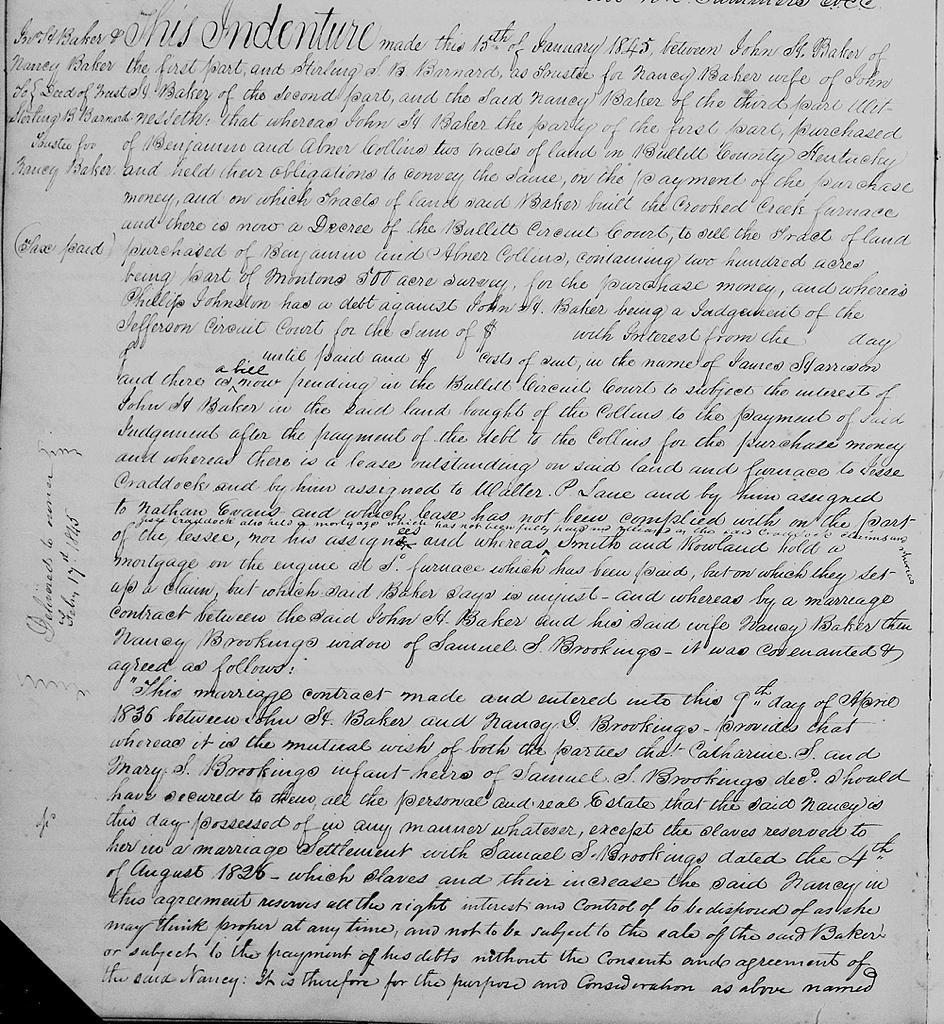 Jno H Baker &
Nancy Baker
To } Deed of Trust
Sterling B Barnard
Trustee for
Nancy Baker
(Tax paid)
Delivered to owner
Feby 17th 1845
This Indenture made this 15th of January 1845, between John H. Baker of
the first part, and Stirling S. B. Barnard, as Trustee for Nancy Baker wife of John
H. Baker of the second part, and the said Nancy Baker of the third part Wit-
nesseth: that whereas John H Baker the party of the first part, purchased
of Benjamin and Abner Collins two tracts of land in Bullitt County Kentucky
and held their obligations to convey the same, on the payment of the purchase
money, and on which Tracts of land said Baker built the Crooked Creek furnace
and there is now a Decree of the Bullitt Circuit Court, to sell the Tract of land
purchased of Benjamin and Abner Collins, containing two hundred acres
being part of Montons 500 acre survey, for the purchase money, and whereas
Phillip Johnston has a debt against John H. Baker being a Judgement of the
Jefferson Circuit Court for the Sum of $ with Interest from the day
of until paid and $ costs of suit, in the name of James Harrison
and there is a bill now pending in the Bullitt Circuit Court to subject the interest of
John H Baker in the said land bought of the Collins to the payment of said
Judgement after the payment of the debt to the Collins for the purchase money
and whereas there is a lease outstanding on said land and furnace to Jesse
Craddock and by him assigned to Walter P. Lane and by him assigned
to Nathan Evans and which lease has not been complied with on the part
Jesse Craddock also held a mortgage which has not been fully paid
of the lessee, nor his assignees and whereas Smith and Rowland hold a
mortgage on the engine at s. furnace which has been paid, but on which they set
up a claim, but which said Baker says is unjust - and whereas by a marriage
contract between the said John H. Baker and his said wife Nancy Baker then
Nancy Brookings widow of Samuel S. Brookings - it was covenanted &
agreed as follows:
"This marriage contract made and entered into this 9th day of April
1836 between John H. Baker and Nancy D. Brookings - provides that
whereas it is the mutual wish of both the parties that Catharine S. and
Mary S. Brookings infant heirs of Samuel S. Brookings decd. should
have secured to them, all the personal and real Estate that the said Nancy is
this day possessed of in any manner whatever, except the slaves reserved to
her in a marriage Settlement with Samuel S. Brookings dated the 4th
of August 1826 - which slaves and their increase the said Nancy in
this agreement reserves all the right interest and control of to be disposed of as she
may think proper at any time, and not to be subject to the sale of the said Baker
or subject to the payment of his debts without the Consent and agreement of
the said Nancy: It is therefore for the purpose and Consideration as above named